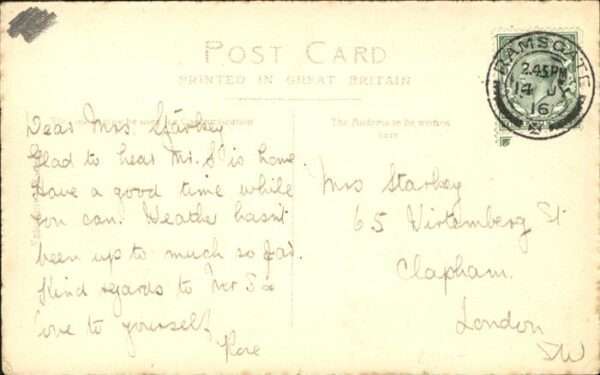 POST CARD
PRINTED IN GREAT BRITAIN
RAMSGATE
2.45 PM
14 J
16
The Address to be written here
Dear Mrs Starkey
Glad to hear Mr. S is home.
Have a good time while
you can. Weather hasn't
been up to much so far.
Kind regards to Mr S &
love to yourself
Rose
Mrs Starkey
65 Virtemberg St
Clapham.
London
SW